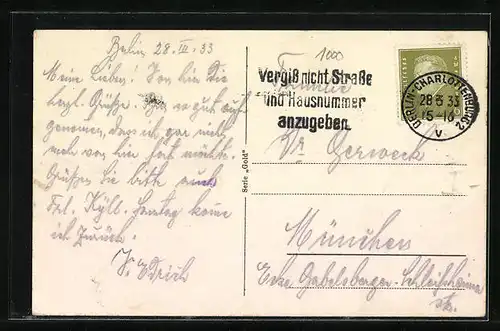 Berlin 28. III. 33
Meine Lieben! Von hier die
herzl. Grüße. Bin so gut auf-
genommen, dass ich gar nicht
mehr von hier fort möchte.
Grüßen Sie bitte auch
Frl. Kyll. Sonntag komme
ich zurück.
Serie „Gold"
1000
Familie
Vergiß nicht Straße
und Hausnummer
anzugeben
BERLIN-CHARLOTTENBURG 2
28 3 33
15-16
V
Dr Gerweck
München
Ecke Gabelsberger-Schleißheimer
str.